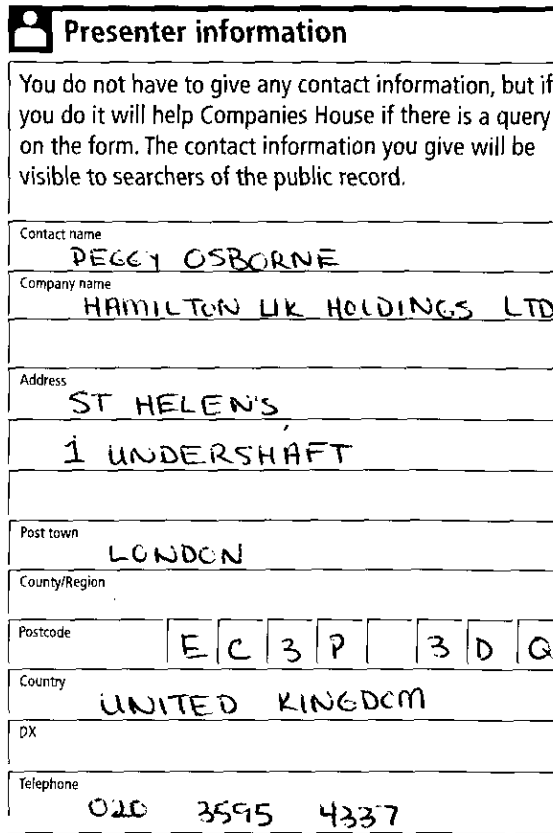 Presenter information
You do not have to give any contact information, but if
you do it will help Companies House if there is a query
on the form. The contact information you give will be
visible to searchers of the public record.
Contact name
PEGGY OSBORNE
Company name
HAMILTON UK HOLDINGS LTD
Address
ST HELEN'S
1 UNDERSHAFT
Post town
LONDON
County/Region
Postcode
EC3P 3DQ
Country
UNITED KINGDOM
DX
Telephone
020 3595 4337